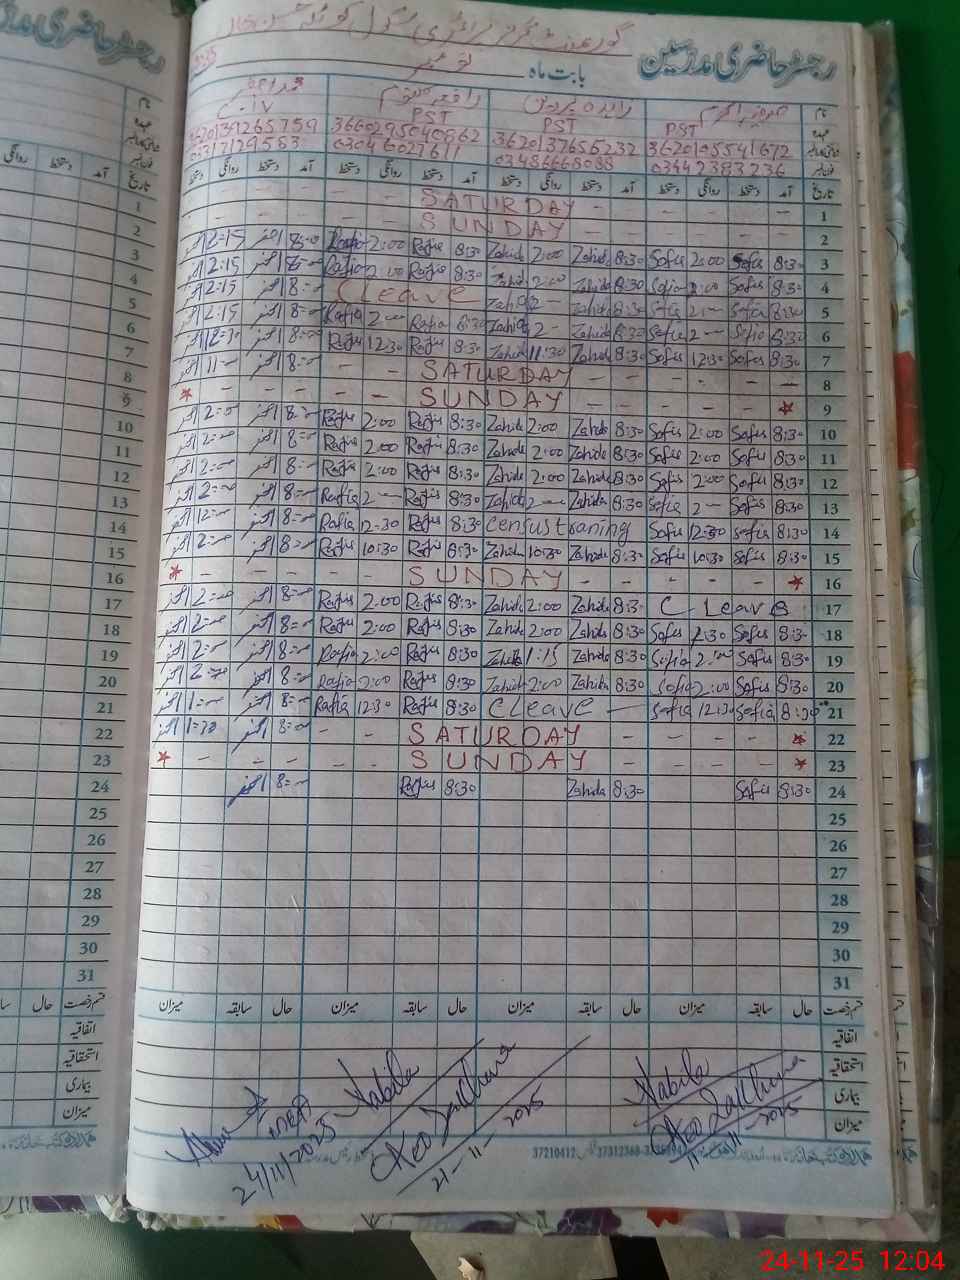 رجسٹر حاضری مدرسین
گورنمنٹ گرلز پرائمری سکول
بابت ماہ نومبر
نام صفیہ انجم زاہدہ پروین رافعہ کلثوم
عہدہ PST PST PST
3620105541672 3620137656232 3660295040862 3620139265759
فون نمبر 03442383236 03486668088 03046027611
تاریخ آمد دستخط روانگی دستخط آمد دستخط روانگی دستخط آمد دستخط روانگی دستخط آمد دستخط روانگی دستخط
1 SATURDAY
2 SUNDAY
3 8:30 Sofia 2:00 Sofia 8:30 Zahida 2:00 Zahida 8:30 Rafia 2:00 Rafia 8:00 2:15
4 8:30 Sofia 2:00 Sofia 8:30 Zahida 2:00 Zahida 8:30 Rafia 2:00 Rafia 8:00 2:15
5 8:30 Sofia 2 Sofia 8:30 Zahida 2 Zahida C Leave 8:00 2:15
6 8:30 Sofia 2 Sofia 8:30 Zahida 2 Zahida 8:30 Rafia 2 Rafia 8:00 2:15
7 8:30 Sofia 12:30 Sofia 8:30 Zahida 11:30 Zahida 8:30 Rafia 12:30 Rafia 8:00 12:30
8 SATURDAY 8:00 11:00
9 SUNDAY
10 8:30 Sofia 2:00 Sofia 8:30 Zahida 2:00 Zahida 8:30 Rafia 2:00 Rafia 8:00 2:00
11 8:30 Sofia 2:00 Sofia 8:30 Zahida 2:00 Zahida 8:30 Rafia 2:00 Rafia 8:00 2:00
12 8:30 Sofia 2:00 Sofia 8:30 Zahida 2:00 Zahida 8:30 Rafia 2:00 Rafia 8:00 2:00
13 8:30 Sofia 2 Sofia 8:30 Zahida 2 Zahida 8:30 Rafia 2 Rafia 8:00 2:00
14 8:30 Sofia 12:30 Sofia Census traning 8:30 Rafia 12:30 Rafia 8:00 12:00
15 8:30 Sofia 10:30 Sofia 8:30 Zahida 10:30 Zahida 8:30 Rafia 10:30 Rafia 8:00 2:00
16 SUNDAY
17 C Leave 8:30 Zahida 2:00 Zahida 8:30 Rafia 2:00 Rafia 8:00 2:00
18 8:30 Sofia 2:30 Sofia 8:30 Zahida 2:00 Zahida 8:30 Rafia 2:00 Rafia 8:00 2:00
19 8:30 Sofia 2:00 Sofia 8:30 Zahida 1:15 Zahida 8:30 Rafia 2:00 Rafia 8:00 2:00
20 8:30 Sofia 2:00 Sofia 8:30 Zahida 2:00 Zahida 8:30 Rafia 2:00 Rafia 8:00 2:00
21 8:30 Sofia 12:30 Sofia C Leave 8:30 Rafia 12:30 Rafia 8:00 1:00
22 SATURDAY 8:00 1:30
23 SUNDAY
24 8:30 Sofia 8:30 Zahida 8:30 Rafia 8:00
25
26
27
28
29
30
31
قسم رخصت حال سابقہ میزان حال سابقہ میزان حال سابقہ میزان حال سابقہ میزان
اتفاقیہ
استحقاقیہ
بیماری
میزان
Nabila
11-11-2025
Nabila
21-11-2025
24/11/2025
24-11-25 12:04